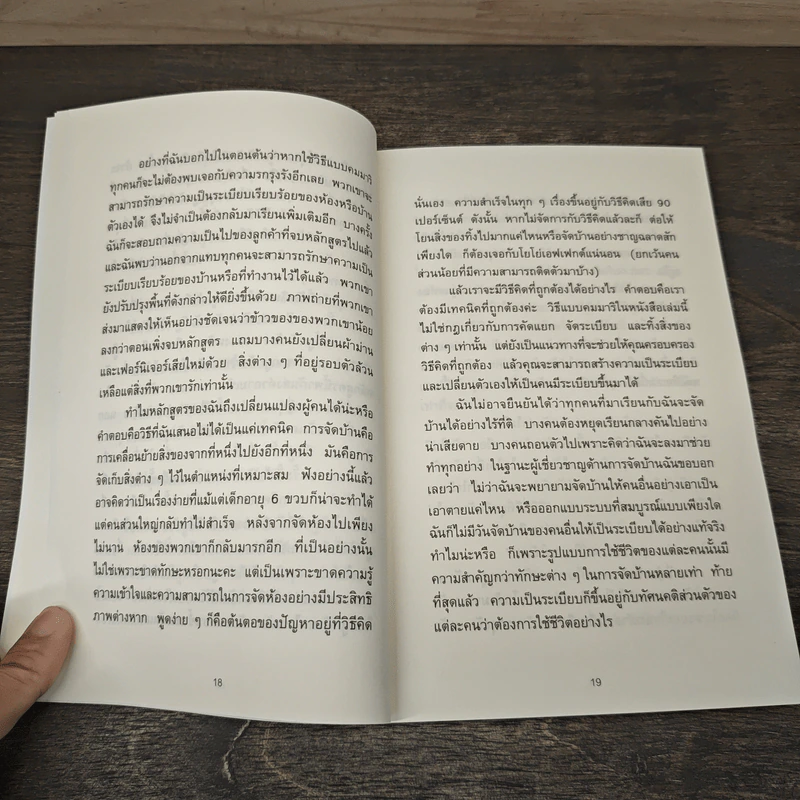 อย่างที่ฉันบอกไปในตอนต้นว่าหากใช้วิธีแบบคมมาริ
ทุกคนก็จะไม่ต้องพบเจอกับความรกรุงรังอีกเลย พวกเขาจะ
สามารถรักษาความเป็นระเบียบเรียบร้อยของห้องหรือบ้าน
ตัวเองได้ จึงไม่จำเป็นต้องกลับมาเรียนเพิ่มเติมอีก บางครั้ง
ฉันก็จะสอบถามความเป็นไปของลูกค้าที่จบหลักสูตรไปแล้ว
และฉันพบว่านอกจากแทบทุกคนจะสามารถรักษาความเป็น
ระเบียบเรียบร้อยของบ้านหรือที่ทำงานไว้ได้แล้ว พวกเขา
ยังปรับปรุงพื้นที่ดังกล่าวให้ดียิ่งขึ้นด้วย ภาพถ่ายที่พวกเขา
ส่งมาแสดงให้เห็นอย่างชัดเจนว่าข้าวของของพวกเขาน้อย
ลงกว่าตอนเพิ่งจบหลักสูตร แถมบางคนยังเปลี่ยนผ้าม่าน
และเฟอร์นิเจอร์เสียใหม่ด้วย สิ่งต่าง ๆ ที่อยู่รอบตัวล้วน
เหลือแต่สิ่งที่พวกเขารักเท่านั้น
ทำไมหลักสูตรของฉันถึงเปลี่ยนแปลงผู้คนได้น่ะหรือ
คำตอบคือวิธีที่ฉันเสนอไม่ได้เป็นแค่เทคนิค การจัดบ้านคือ
การเคลื่อนย้ายสิ่งของจากที่หนึ่งไปยังอีกที่หนึ่ง มันคือการ
จัดเก็บสิ่งต่าง ๆ ไว้ในตำแหน่งที่เหมาะสม ฟังอย่างนี้แล้ว
อาจคิดว่าเป็นเรื่องง่ายที่แม้แต่เด็กอายุ 6 ขวบก็น่าจะทำได้
แต่คนส่วนใหญ่กลับทำไม่สำเร็จ หลังจากจัดห้องไปเพียง
ไม่นาน ห้องของพวกเขาก็กลับมารกอีก ที่เป็นอย่างนั้น
ไม่ใช่เพราะขาดทักษะหรอกนะคะ แต่เป็นเพราะขาดความรู้
ความเข้าใจและความสามารถในการจัดห้องอย่างมีประสิทธิ
ภาพต่างหาก พูดง่าย ๆ ก็คือต้นตอของปัญหาอยู่ที่วิธีคิด
18
นั่นเอง ความสำเร็จในทุก ๆ เรื่องขึ้นอยู่กับวิธีคิดเสีย 90
เปอร์เซ็นต์ ดังนั้น หากไม่จัดการกับวิธีคิดแล้วละก็ ต่อให้
โยนสิ่งของทิ้งไปมากแค่ไหนหรือจัดบ้านอย่างชาญฉลาดสัก
เพียงใด ก็ต้องเจอกับโยโย่เอฟเฟกต์แน่นอน (ยกเว้นคน
ส่วนน้อยที่มีความสามารถติดตัวมาบ้าง)
แล้วเราจะมีวิธีคิดที่ถูกต้องได้อย่างไร คำตอบคือเรา
ต้องมีเทคนิคที่ถูกต้องค่ะ วิธีแบบคมมาริในหนังสือเล่มนี้
ไม่ใช่กฎเกี่ยวกับการคัดแยก จัดระเบียบ และทิ้งสิ่งของ
ต่าง ๆ เท่านั้น แต่ยังเป็นแนวทางที่จะช่วยให้คุณครอบครอง
วิธีคิดที่ถูกต้อง แล้วคุณจะสามารถสร้างความเป็นระเบียบ
และเปลี่ยนตัวเองให้เป็นคนมีระเบียบขึ้นมาได้
ฉันไม่อาจยืนยันได้ว่าทุกคนที่มาเรียนกับฉันจะจัด
บ้านได้อย่างไร้ที่ติ บางคนต้องหยุดเรียนกลางคันไปอย่าง
น่าเสียดาย บางคนถอนตัวไปเพราะคิดว่าฉันจะลงมาช่วย
ทำทุกอย่าง ในฐานะผู้เชี่ยวชาญด้านการจัดบ้านฉันขอบอก
เลยว่า ไม่ว่าฉันจะพยายามจัดบ้านให้คนอื่นอย่างเอาเป็น
เอาตายแค่ไหน หรือออกแบบระบบที่สมบูรณ์แบบเพียงใด
ฉันก็ไม่มีวันจัดบ้านของคนอื่นให้เป็นระเบียบได้อย่างแท้จริง
ทำไมน่ะหรือ ก็เพราะรูปแบบการใช้ชีวิตของแต่ละคนนั้นมี
ความสำคัญกว่าทักษะต่าง ๆ ในการจัดบ้านหลายเท่า ท้าย
ที่สุดแล้ว ความเป็นระเบียบก็ขึ้นอยู่กับทัศนคติส่วนตัวของ
แต่ละคนว่าต้องการใช้ชีวิตอย่างไร
19